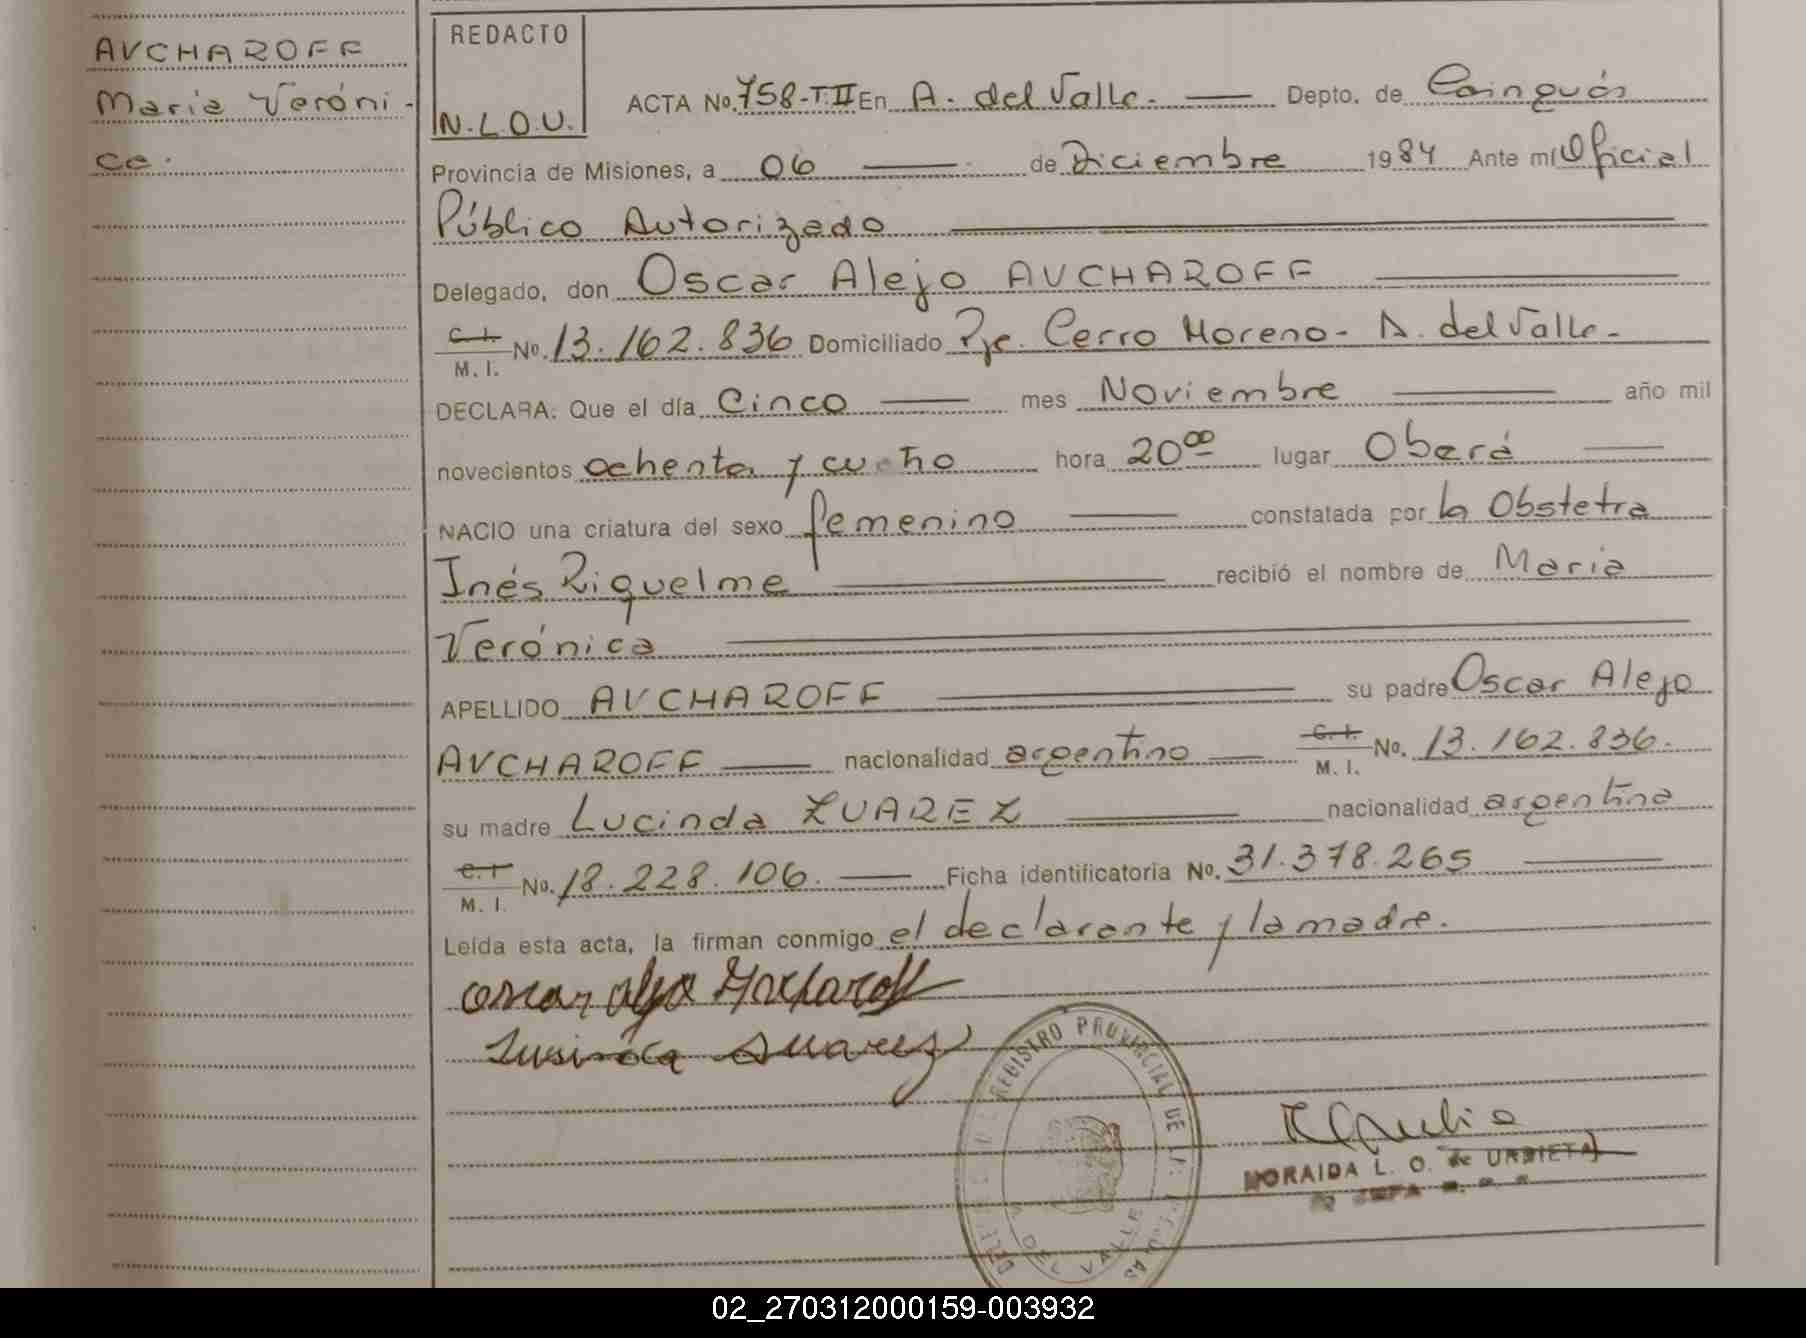 AVCHAROFF
Maria Veróni-
ca.
REDACTO
N.L.O.U.
ACTA No. 758-T.II En A. del Valle. Depto. de Cainguás
Provincia de Misiones, a 06 de Diciembre 1984 Ante mí Oficial
Público Autorizado
Delegado, don Oscar Alejo AVCHAROFF
C.I.
M. I. No. 13.162.836 Domiciliado Pje. Cerro Moreno - A. del Valle.
DECLARA: Que el día Cinco mes Noviembre año mil
novecientos ochenta y cuatro hora 20⁰⁰ lugar Oberá
NACIO una criatura del sexo femenino constatada por la Obstetra
Inés Riquelme recibió el nombre de Maria
Verónica
APELLIDO AVCHAROFF su padre Oscar Alejo
AVCHAROFF nacionalidad argentino C.I. M. I. No. 13.162.836.
su madre Lucinda ZUAREZ nacionalidad argentina
C.I. M. I. No. 18.228.106. Ficha identificatoria No. 31.378.265
Leída esta acta, la firman conmigo el declarante y la madre.
oscar alejo Avcharoff
Lusinda Suarez
REGISTRO PROVINCIAL DE LAS PERSONAS
A. DEL VALLE
NORAIDA L. O. de URBIETA
02_270312000159-003932